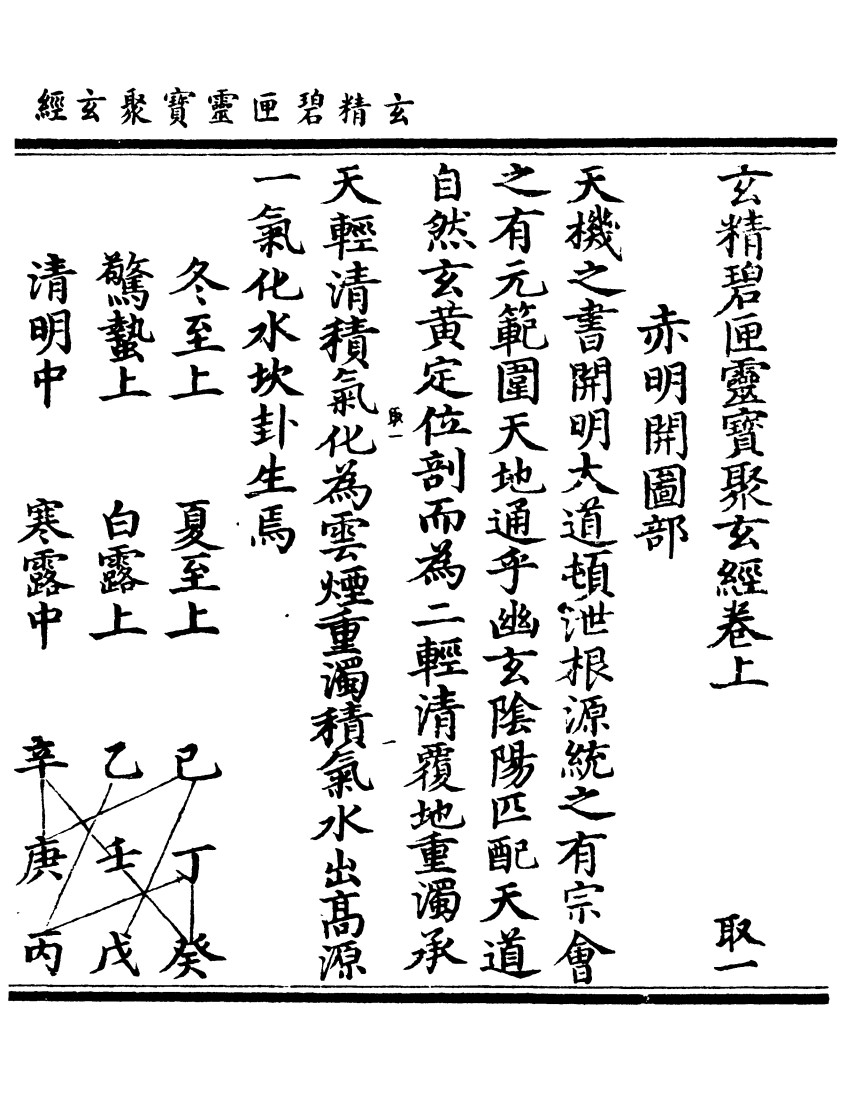 玄精碧匣靈寶聚玄經
玄精碧匣靈寶聚玄經卷上 取一
赤明開圖部
天機之書開明大道頓泄根源統之有宗會
之有元範圍天地通乎幽玄陰陽匹配天道
自然玄黃定位剖而為二輕清覆地重濁承
取一
天輕清積氣化為雲煙重濁積氣水出高源
一氣化水坎卦生焉
冬至上 夏至上 己 丁 癸
驚蟄上 白露上 乙 壬 戊
清明中 寒露中 辛 庚 丙